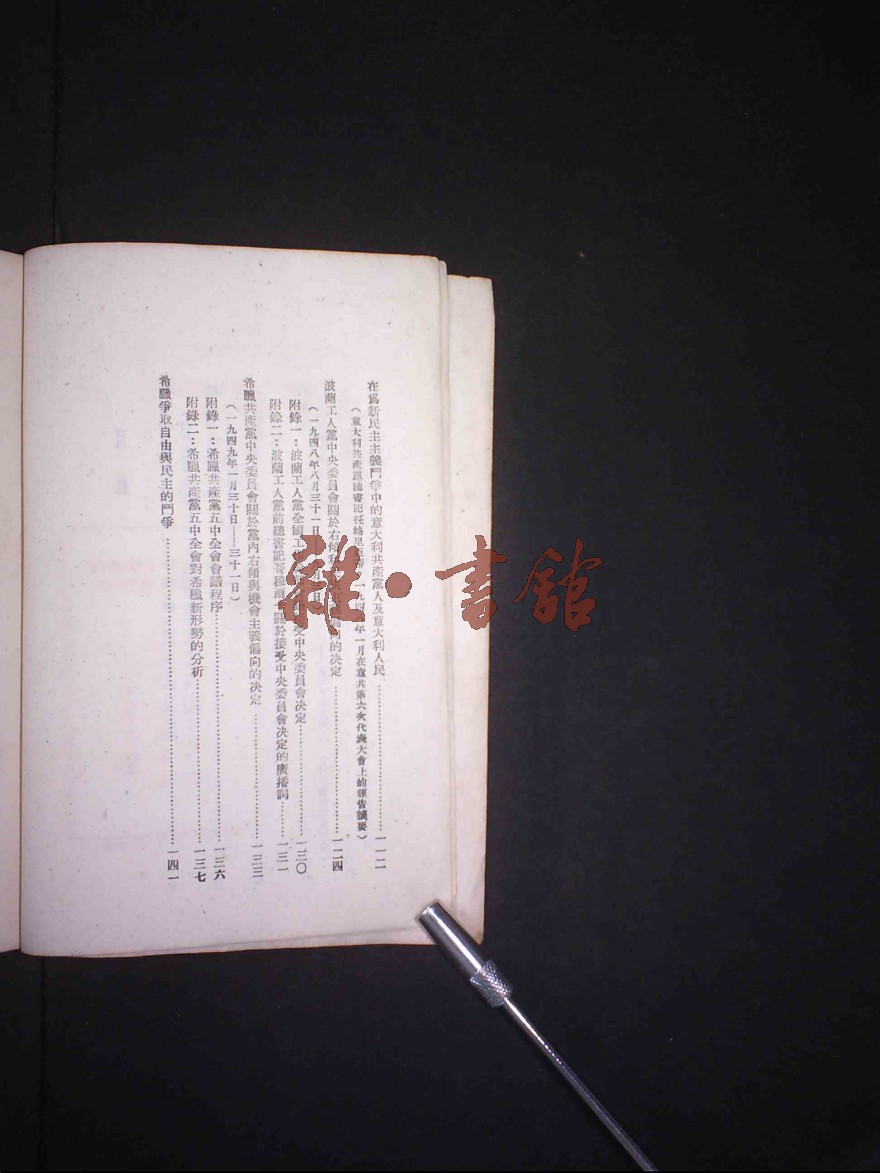 在爲新民主主義鬥爭中的意大利共產黨人及意大利人民……一一二
(意大利共產黨總書記托格里 一九四 年一月在意共第六次代表大會上的報告摘要)
波蘭工人黨中央委員會關於右傾 的決定……一二四
(一九四八年八月三十一日 月 日)
附錄一:波蘭工人黨全國工 受中央委員會決定……一三〇
附錄二:波蘭工人黨前總書記哥 關於接受中央委員會決定的廣播詞……一三一
希臘共產黨中央委員會關於黨內右傾與機會主義偏向的決定……一三三
(一九四九年一月三十日——三十一日)
附錄一:希臘共產黨五中全會會議程序……一三六
附錄二:希臘共產黨五中全會對希臘新形勢的分析……一三七
希臘爭取自由與民主的鬥爭……一四一
雜·書館